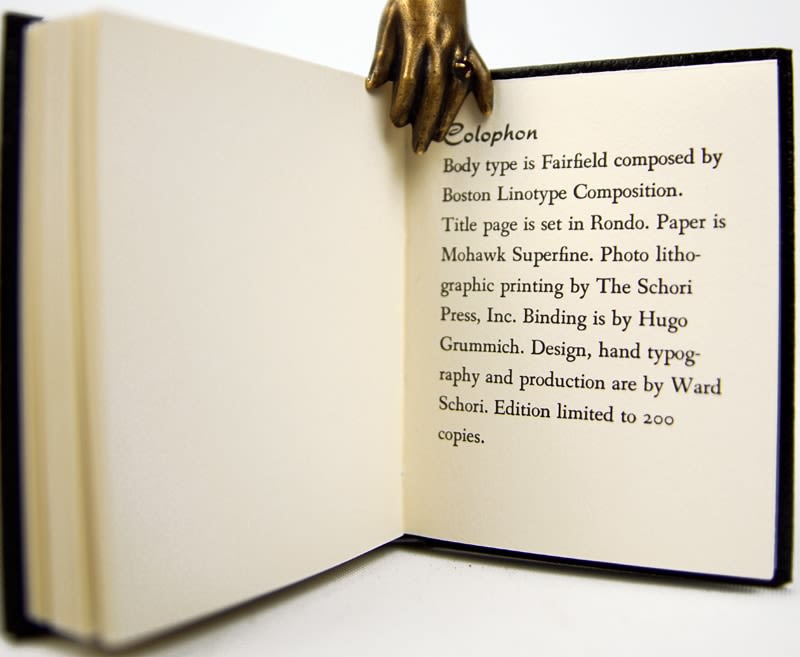 Colophon
Body type is Fairfield composed by
Boston Linotype Composition.
Title page is set in Rondo. Paper is
Mohawk Superfine. Photo litho-
graphic printing by The Schori
Press, Inc. Binding is by Hugo
Grummich. Design, hand typog-
raphy and production are by Ward
Schori. Edition limited to 200
copies.